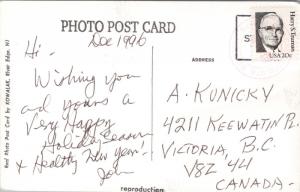 PHOTO POST CARD
Dec 1996
Hi -
Wishing you
and yours a
Very Happy
Holiday Season
& Healthy New year!
ADDRESS
A. KUNICKY
4211 KEEWATIN PL.
VICTORIA, B.C.
V8Z '44
CANADA -
Harry S. Truman
USA 20c
Real Photo Post Card by KOWALAK, River Edge, NJ
reproduction